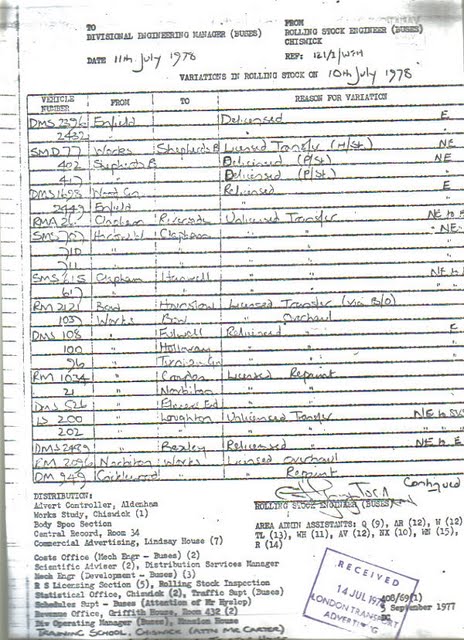 TO
DIVISIONAL ENGINEERING MANAGER (BUSES)
FROM
ROLLING STOCK ENGINEER (BUSES)
CHISWICK
DATE 11th July 1978
REF: 121/1/WSH
VARIATIONS IN ROLLING STOCK ON 10th July 1978
VEHICLE NUMBER FROM TO REASON FOR VARIATION
DMS 2396 Enfield Delicensed E
2432 " "
SMD 77 Works Shepherds B Licensed Transfer (H/St) NE
402 Shepherds B Delicensed (P/St) NE
417 " Delicensed (P/St) "
DMS 1698 Wood Gn Relicensed E
2449 Enfield "
RMA 21 Clapham Riverside Unlicensed Transfer NE to
SMS Clapham " " NE
710 " " "
711 " " "
SMS 615 Clapham Hanwell " " NE to
617 " " " "
RM 2121 Bow Hounslow Licensed Transfer (via B/O)
1037 Works Bow " Overhaul
DMS 108 " Fulwell Relicensed E
100 " Holloway "
96 " "
RM 1034 " Croydon Licensed Repaint
21 " Norbiton "
DMS 526 " "
LS 200 " Loughton Unlicensed Transfer NE to
202 " " " "
DMS 2489 " Bexley Relicensed NE to E
RM 2096 Norbiton Works Licensed Overhaul
DM 949 Cricklewood " Repaint
Continued
DISTRIBUTION:
Advert Controller, Aldenham
Works Study, Chiswick (1)
Body Spec Section
Central Record, Room 34
Commercial Advertising, Lindsay House (7)
ROLLING STOCK ENGINEER (BUSES)
AREA ADMIN ASSISTANTS: Q (9), AR (12), W (12)
TL (13), WH (11), AV (12), NX (10), WN (15),
R (14)
Costs Office (Mech Engr - Buses) (2)
Scientific Adviser (2), Distribution Services Manager
Mech Engr (Development - Buses) (3)
R S Licensing Section (5), Rolling Stock Inspection
Statistical Office, Chiswick (2), Traffic Supt (Buses)
Schedules Supt - Buses (Attention of Mr Hyslop)
Revenue Office, Griffith House, Room 438 (2)
Div Operating Manager (Buses), Mansion House
TRAINING SCHOOL, CHISWICK (ATTN MR CARTER)
RECEIVED
14 JUL 197
LONDON TRANSPORT
ADVERTISING
408/69(1)
5 September 1977
BG